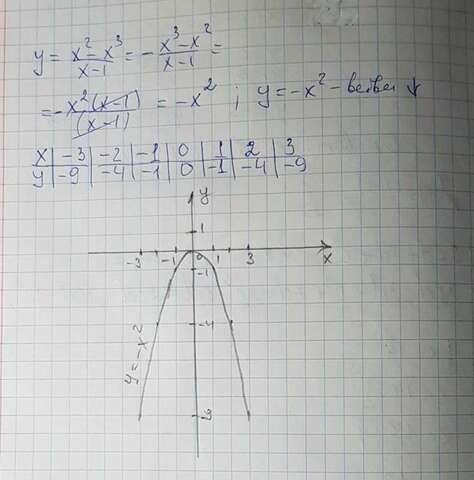 y = (x² - x³)/(x - 1) = - (x³ - x²)/(x - 1) =
= - x²(x-1)/(x-1) = - x² ; y = -x² - ветви ↓
x | -3 | -2 | -1 | 0 | 1 | 2 | 3
y | -9 | -4 | -1 | 0 | -1 | -4 | -9
y
1
-3 -1 0 1 3 x
-1
-4
y = -x²